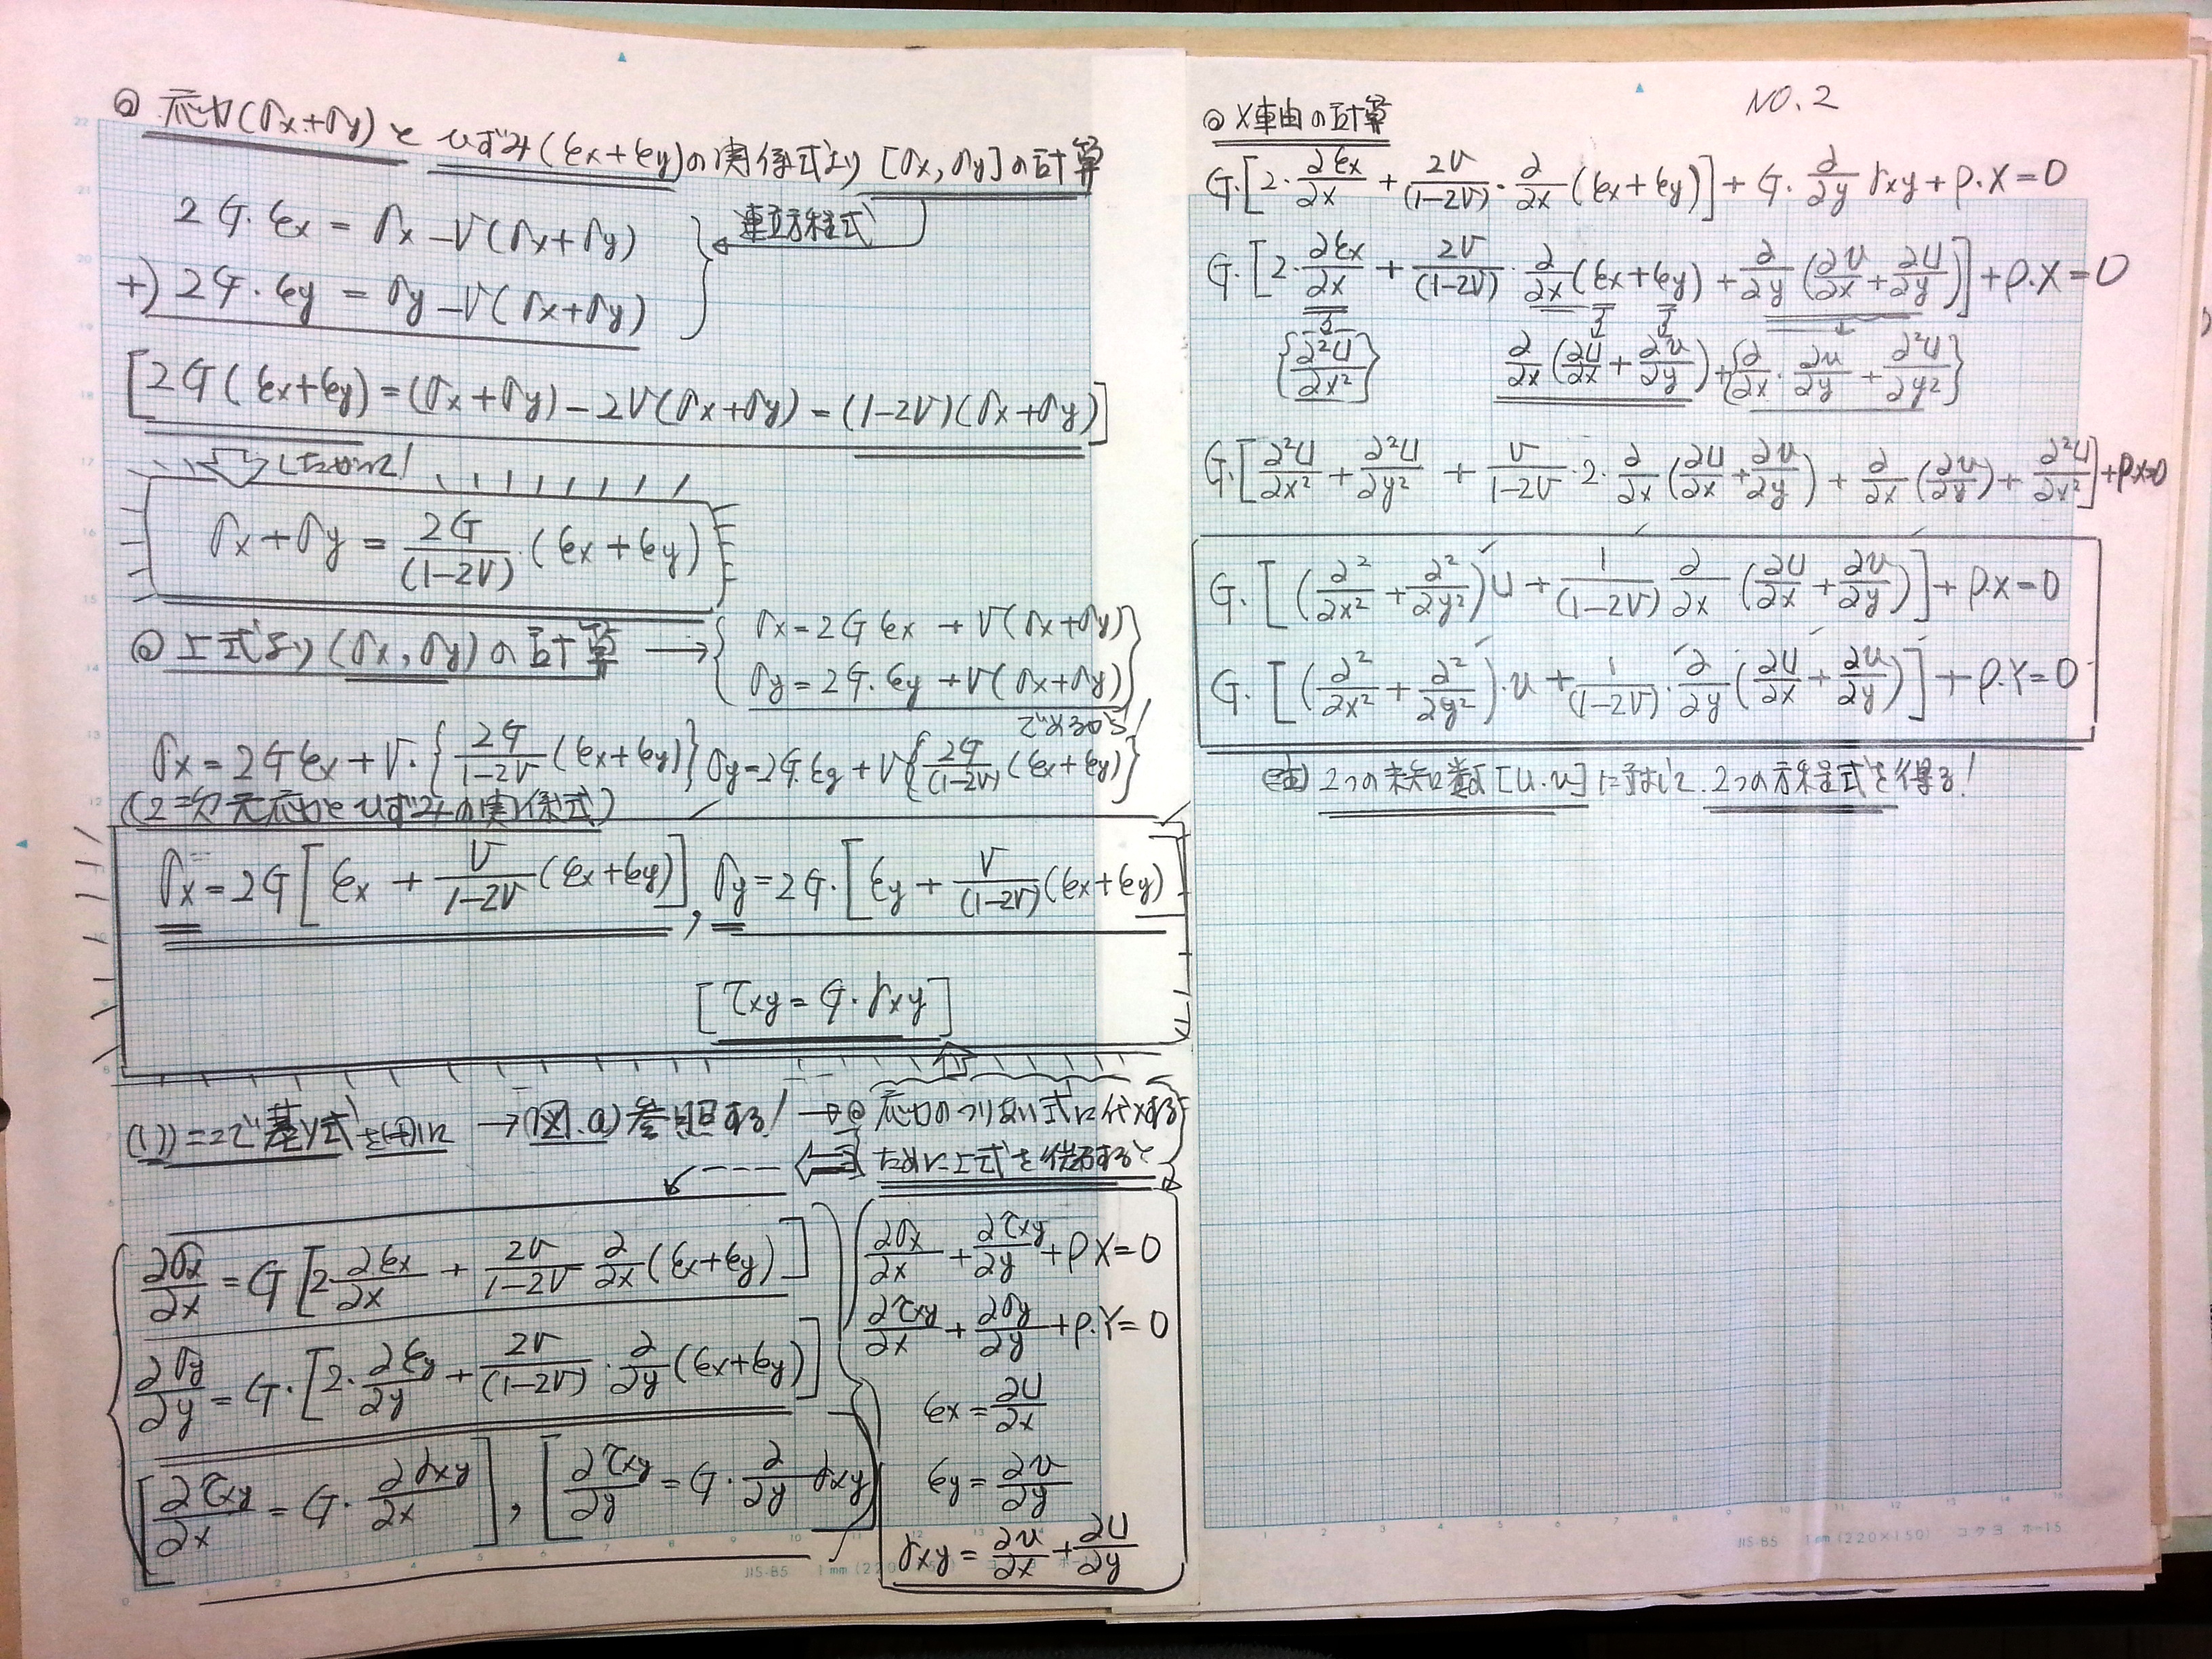 ◎ 応力(σx+σy)と ひずみ(εx+εy)の関係式より [σx, σy]の計算
2G・εx = σx −ν(σx+σy)
連立方程式
+) 2G・εy = σy −ν(σx+σy)
[2G(εx+εy)=(σx+σy)−2ν(σx+σy)=(1−2ν)(σx+σy)]
したがって!
σx+σy = 2G/(1−2ν)・(εx+εy)
◎ 上式より(σx, σy)の計算 → { σx=2Gεx + ν(σx+σy)
σy=2G・εy+ν(σx+σy) }
であるから!
σx=2Gεx+ν・{2G/(1−2ν) (εx+εy)} σy=2G・εy+ν{2G/(1−2ν) (εx+εy)}
(2次元応力とひずみの関係式)
σx=2G[εx + ν/(1−2ν) (εx+εy)], σy=2G・[εy + ν/(1−2ν) (εx+εy)]
[τxy=G・γxy]
→(図.a)参照する! →◎ 応力のつりあい式に代入する
∂σx/∂x = G[2 ∂εx/∂x + 2ν/(1−2ν) ∂/∂x (εx+εy)]
∂σy/∂y = G・[2・∂εy/∂y + 2ν/(1−2ν)・∂/∂y (εx+εy)]
[∂τxy/∂x = G・∂γxy/∂x], [∂τxy/∂y = G・∂/∂y γxy]
∂σx/∂x + ∂τxy/∂y + ρX=0
∂τxy/∂x + ∂σy/∂y + ρ.Y=0
εx = ∂U/∂x
εy = ∂v/∂y
γxy = ∂v/∂x + ∂U/∂y
NO.2
◎ X軸の計算
G・[2・∂εx/∂x + 2ν/(1−2ν)・∂/∂x (εx+εy)] + G・∂/∂y γxy + ρ.X=0
G・[2・∂εx/∂x + 2ν/(1−2ν)・∂/∂x (εx+εy) + ∂/∂y (∂v/∂x + ∂U/∂y)] + ρ.X=0
{∂²U/∂x²} ∂/∂x (∂U/∂x + ∂v/∂y) + {∂/∂x・∂v/∂y + ∂²U/∂y²}
G・[∂²U/∂x² + ∂²U/∂y² + ν/(1−2ν)・2・∂/∂x (∂U/∂x + ∂v/∂y) + ∂/∂x (∂v/∂y) + ∂²U/∂x²] + ρ.X=0
G・[(∂²/∂x² + ∂²/∂y²)U + 1/(1−2ν) ∂/∂x (∂U/∂x + ∂v/∂y)] + ρ.X=0
G・[(∂²/∂x² + ∂²/∂y²)・v + 1/(1−2ν)・∂/∂y (∂U/∂x + ∂v/∂y)] + ρ.Y=0
2つの未知数[U.v]に対して.2つの方程式を得る!
JIS-B5 1mm(220×150) コクヨ ホ-15